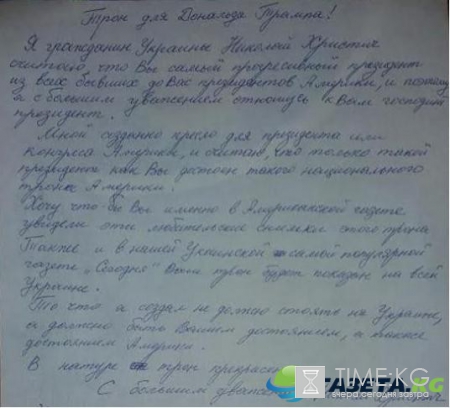 Трон для Дональда Трампа!
Я гражданин Украины Николай Христич
считаю что Вы самый прогресивный президент
из всех бывших до Вас президентов Америки, и поэтому
я с большим уважением отношусь к Вам господин
президент.
Мной созданно кресло для президента или
конгреса Америки, и считаю, что только такой
президент как Вы достоин такого национального
трона Америки.
Хочу что-бы Вы именно в Американской газете
увидели эти любительские снимки этого трона
Также и в нашей Украинской самой популярной
газете „Сегодня" Ваш трон будет показан на всей
Украине.
То что я создал не должно стоять на Украине,
а должно быть Вашим достоянием, а также
достоянием Америки.
В натуре трон
С большим
ГАЗЕТА.KG
TIME-KG
вчера.сегодня.завтра